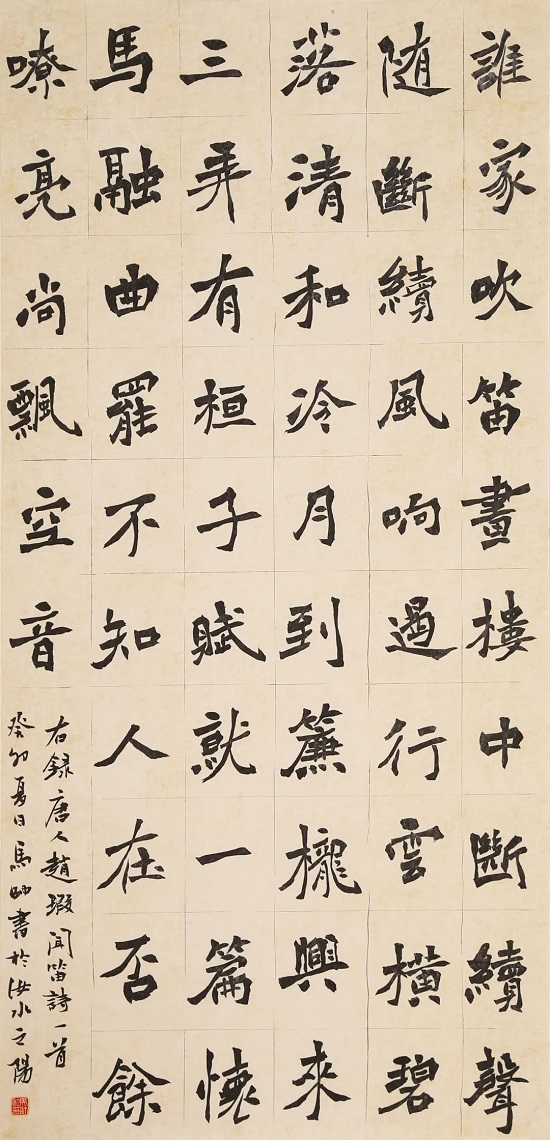 誰家吹笛畫樓中斷續聲
随斷續風响遏行雲橫碧
落清和冷月到簾櫳興來
三弄有桓子賦就一篇懷
馬融曲罷不知人在否餘
嘹亮尚飄空音
右録唐人趙瑕聞笛詩一首
癸卯夏日馬書於汝水之陽